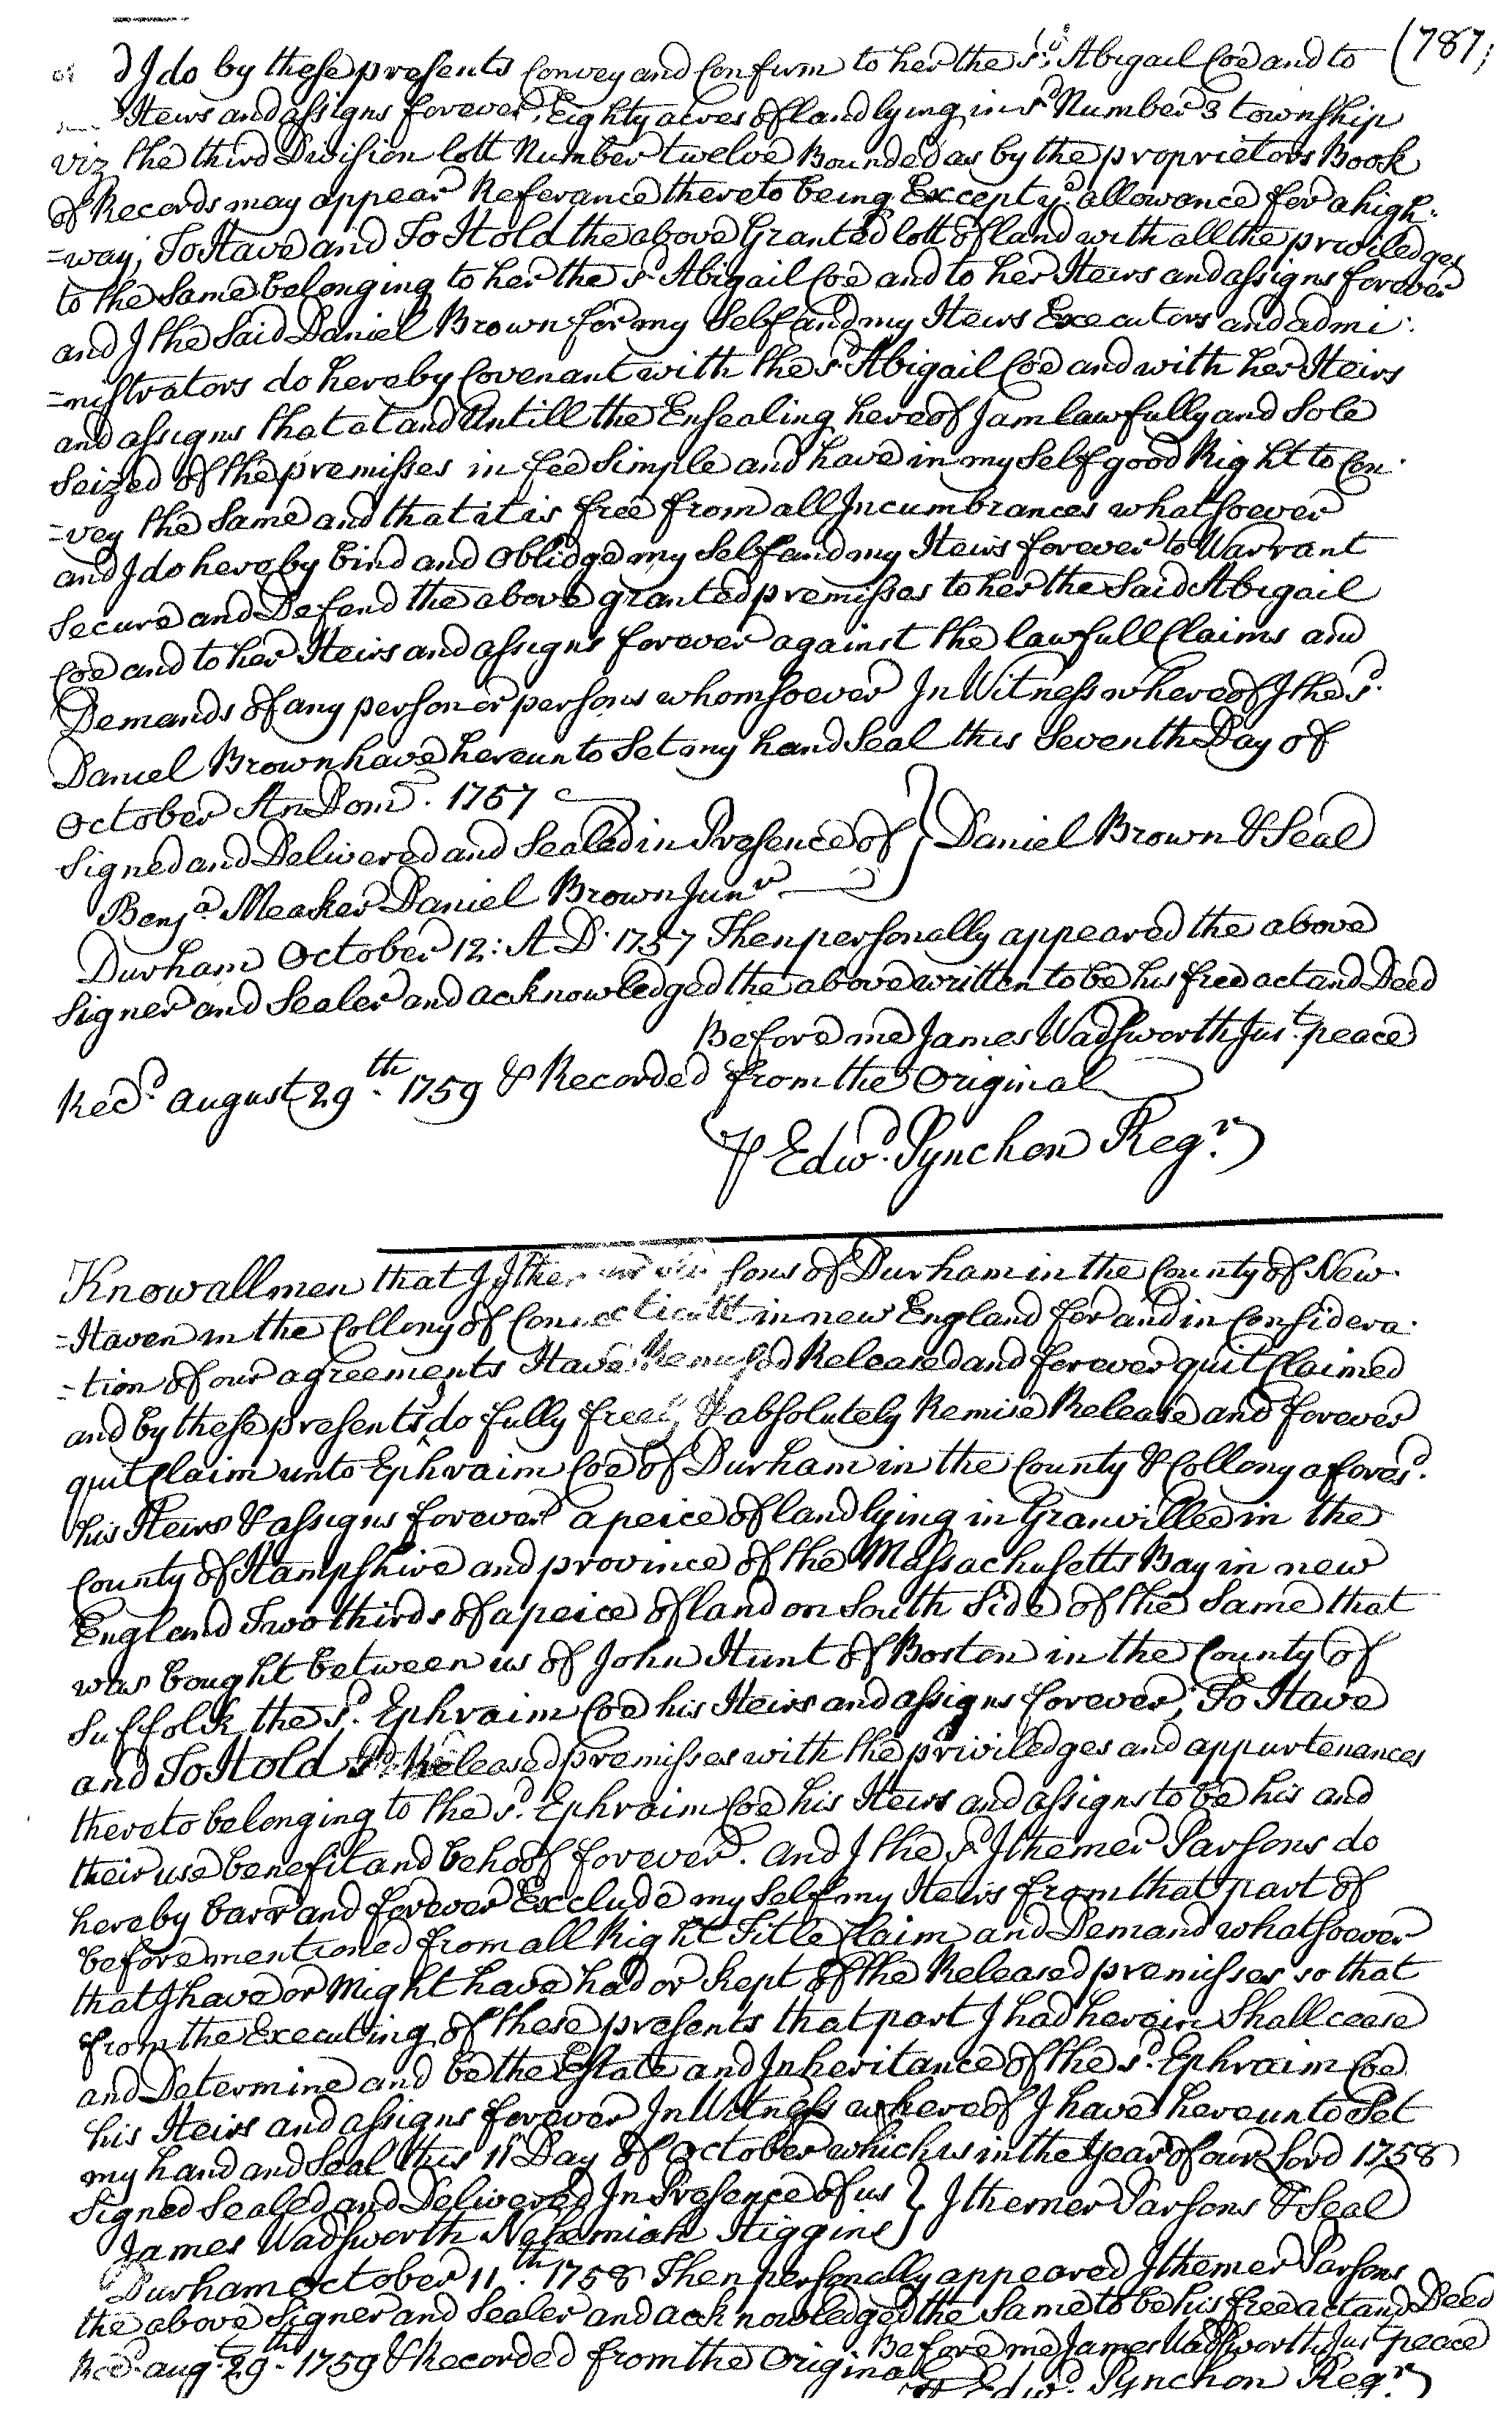 (787)
I do by these presents Convey and Confirm to her the sd. Abigail Coe and to
Heirs and assigns forever, Eighty acres of land lying in sd Number 3 township
viz the third Division lott Number twelve Bounded as by the proprietors Book
of Records may appear Referance thereto being Except ye. allowance for a high-
=way; To Have and To Hold the above Granted lott of land with all the priviledges
to the Same belonging to her the sd Abigail Coe and to her Heirs and assigns forever
and I the Said Daniel Brown for my Self and my Heirs Executors and admi-
=nistrators do hereby Covenant with the sd Abigail Coe and with her Heirs
and assigns that at and Untill the Ensealing hereof I am lawfully and Sole
Seized of the premisses in fee Simple and have in my Self good Right to Con-
=vey the Same and that it is free from all Incumbrances whatsoever
and I do hereby bind and Oblidge my Self and my Heirs forever to Warrant
Secure and Defend the above granted premisses to her the Said Abigail
Coe and to her Heirs and assigns forever against the lawfull Claims and
Demands of any person or persons whomsoever In Witness whereof I the sd.
Daniel Brown have hereunto Set my hand Seal this Seventh Day of
October An Dom. 1757
Signed and Delivered and Sealed in Presence of } Daniel Brown & Seal
Benja. Meaker Daniel Brown Junr
Durham October 12: A D. 1757 Then personally appeared the above
Signer and Sealer and acknowledged the above written to be his free act and Deed
Before me James Wadsworth Just. peace
Recd. august 29th. 1759 & Recorded from the Original
⅌ Edwd. Pynchon Regr.
Know all men that I Ithemer sons of Durham in the County of New-
=Haven in the Collony of Connecticutt in new England for and in Considera-
=tion of our agreements Have Remised Released and forever quit Claimed
and by these presents do fully freely & absolutely Remise Release and forever
quit Claim unto Ephraim Coe of Durham in the County & Collony aforesd.
his Heirs & assigns forever a peice of land lying in Granvilled in the
County of Hampshire and province of the Massachusetts Bay in new
England Two thirds of a peice of land on South Side of the Same that
was bought between us of John Hunt of Boston in the County of
Suffolk the sd. Ephraim Coe his Heirs and assigns forever, To Have
and To Hold sd. Released premisses with the priviledges and appurtenances
thereto belonging to the sd. Ephraim Coe his Heirs and assigns to be his and
their use benefit and behoof forever. and I the sd Ithemer Parsons do
hereby barr and forever Exclude my Self my Heirs from that part of
before mentioned from all Right Title Claim and Demand whatsoever
that I have or Might have had or Kept of the Released premisses so that
from the Executing of these presents that part I had herein Shall cease
and Determine and be the Estate and Inheritance of the sd. Ephraim Coe
his Heirs and assigns forever In Witness whereof I have hereunto Set
my hand and Seal this 11 Day of October which is in the Year of our Lord 1758
Signed Sealed and Delivered In Presence of us } Ithemer Parsons & Seal
James Wadsworth Nehemiah Higgins
Durham October 11th. 1758 Then personally appeared Ithemer Parsons
the above Signer and Sealer and acknowledged the Same to be his free act and Deed
Before me James Wadsworth Just peace
Recd. augt. 29th. 1759 & Recorded from the Original
⅌ Edwd. Pynchon Regr.